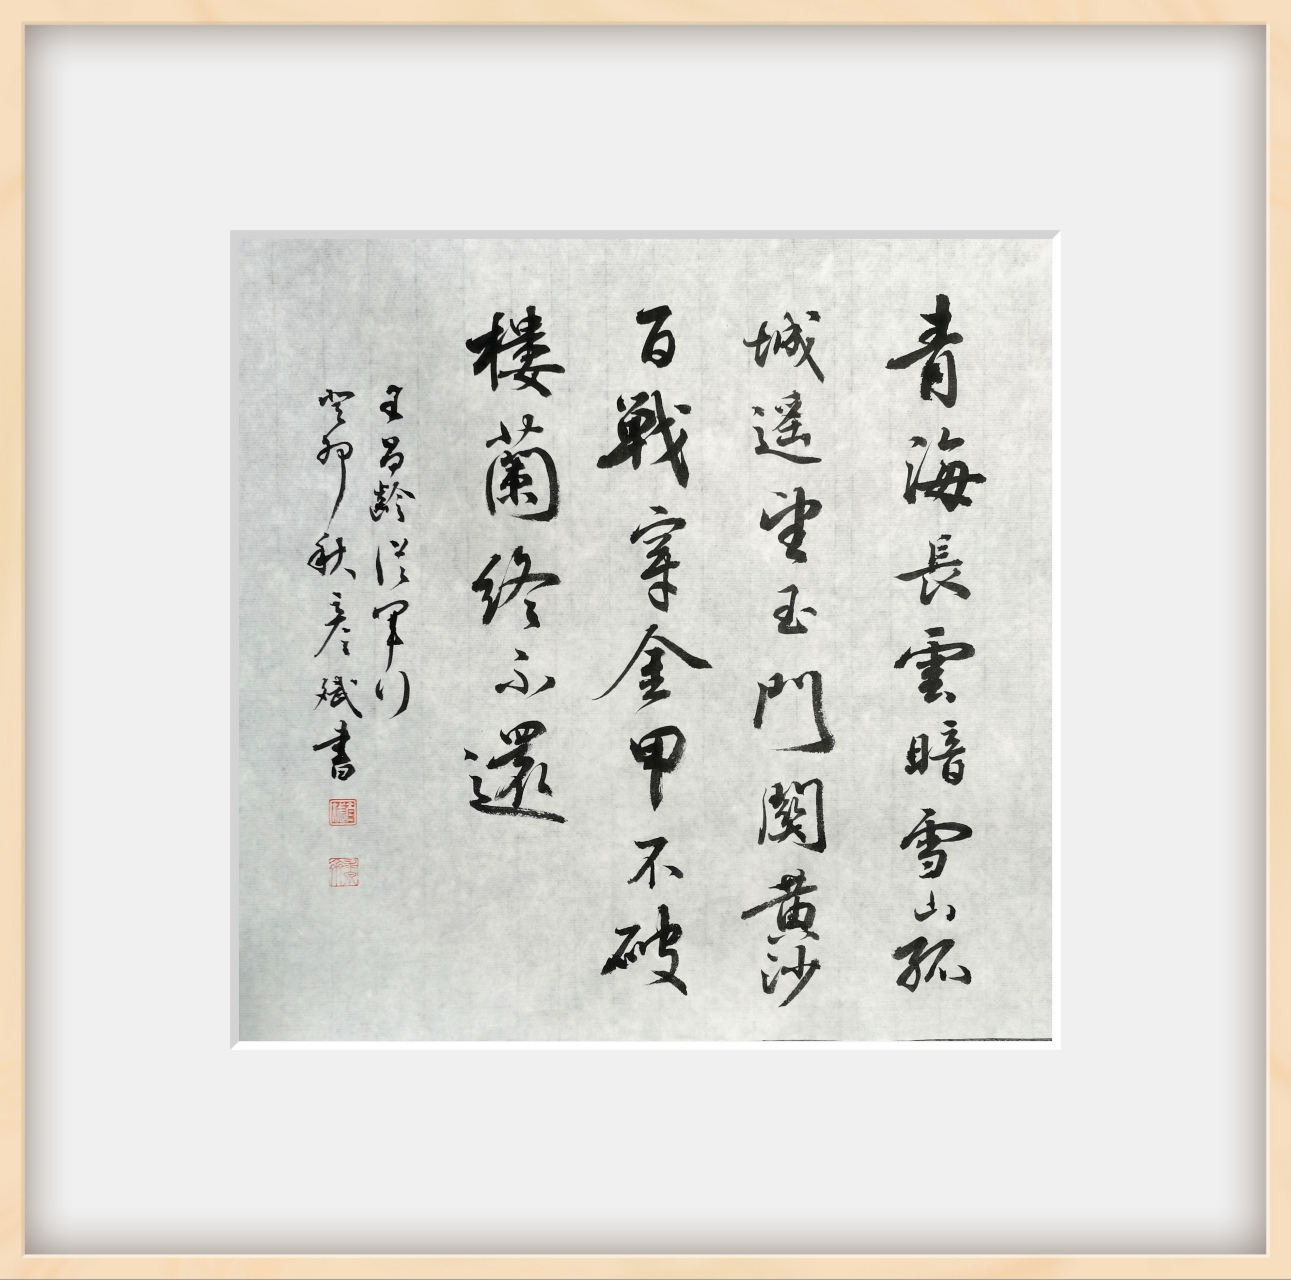 青海長雲暗雪山孤
城遥望玉門関黄沙
百戦穿金甲不破
楼蘭终不還
王昌齡從軍行
癸卯秋彦斌書